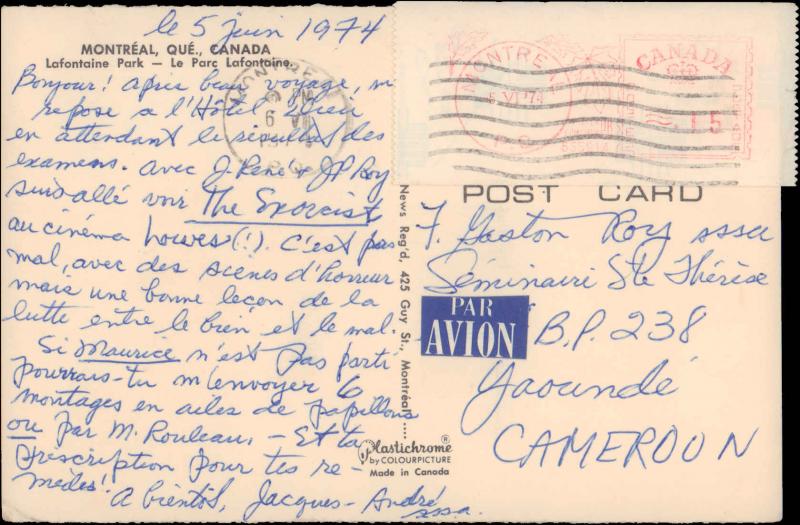 le 5 juin 1974
MONTRÉAL, QUÉ., CANADA
Lafontaine Park — Le Parc Lafontaine.
Bonjour! Après beau voyage, m
repose à l'Hôtel Dieu
en attendant le résultat des
examens. Avec J. René & J.P. Roy
suis allé voir The Exorcist
au cinéma Loews (!). C'est pas
mal, avec des scènes d'horreur
mais une bonne leçon de la
lutte entre le bien et le mal.
Si Maurice n'est pas parti
pourrais-tu m'envoyer 6
montages en ailes de papillons
ou par M. Rouleau. — Et ta
prescription pour tes re-
mèdes!
A bientôt, Jacques-André
sssa.
News Reg'd, 425 Guy St., Montréal
Plastichrome®
by COLOURPICTURE
Made in Canada
MONTRÉAL
P.Q.
CANADA
15
POST CARD
F. Gaston Roy sssa
Séminaire Ste Thérèse
PAR
AVION
B.P. 238
Yaoundé
CAMEROON